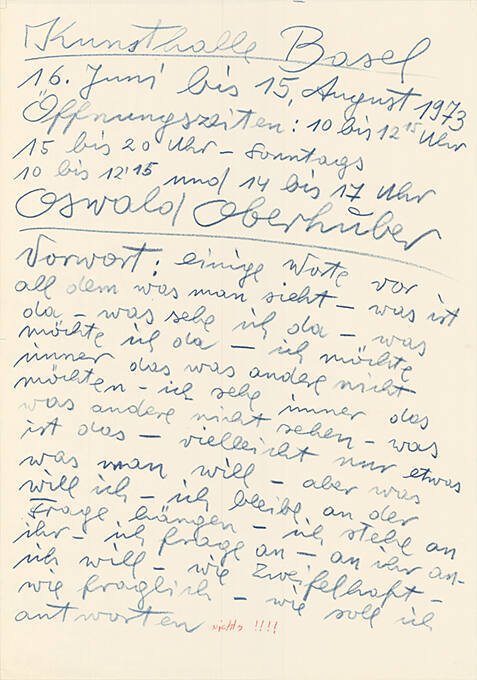 Kunsthalle Basel
16. Juni bis 15. August 1973
Öffnungszeiten: 10 bis 12 15 Uhr
15 bis 20 Uhr – Sonntags
10 bis 12 15 und 14 bis 17 Uhr
Oswald Oberhuber
Vorwort: einige Worte vor
all dem was man sieht – was ist
da – was sehe ich da – was
möchte ich da – ich möchte
immer das was andere nicht
möchten – ich sehe immer das
was andere nicht sehen – was
ist das – vielleicht nur etwas
was man will – aber was
will ich – ich bleibe an der
Frage hängen – ich stehe an
ihr – ich frage an – an ihr an-
ich will – wie zweifelhaft –
wie fraglich – wie soll ich
antworten nichts !!!!